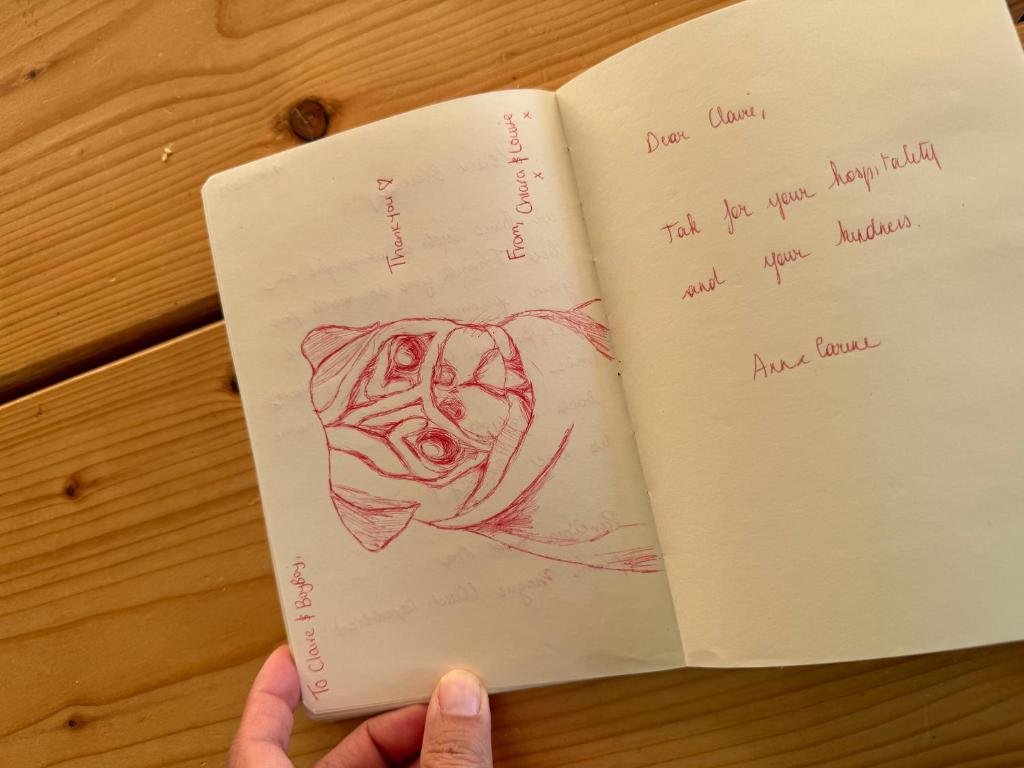 To Claire & BoyBoy,
Thank you
From, Chiara & Louise
x x
Dear Claire,
Tak for your hospitality
and your kindness.
Anna Carine